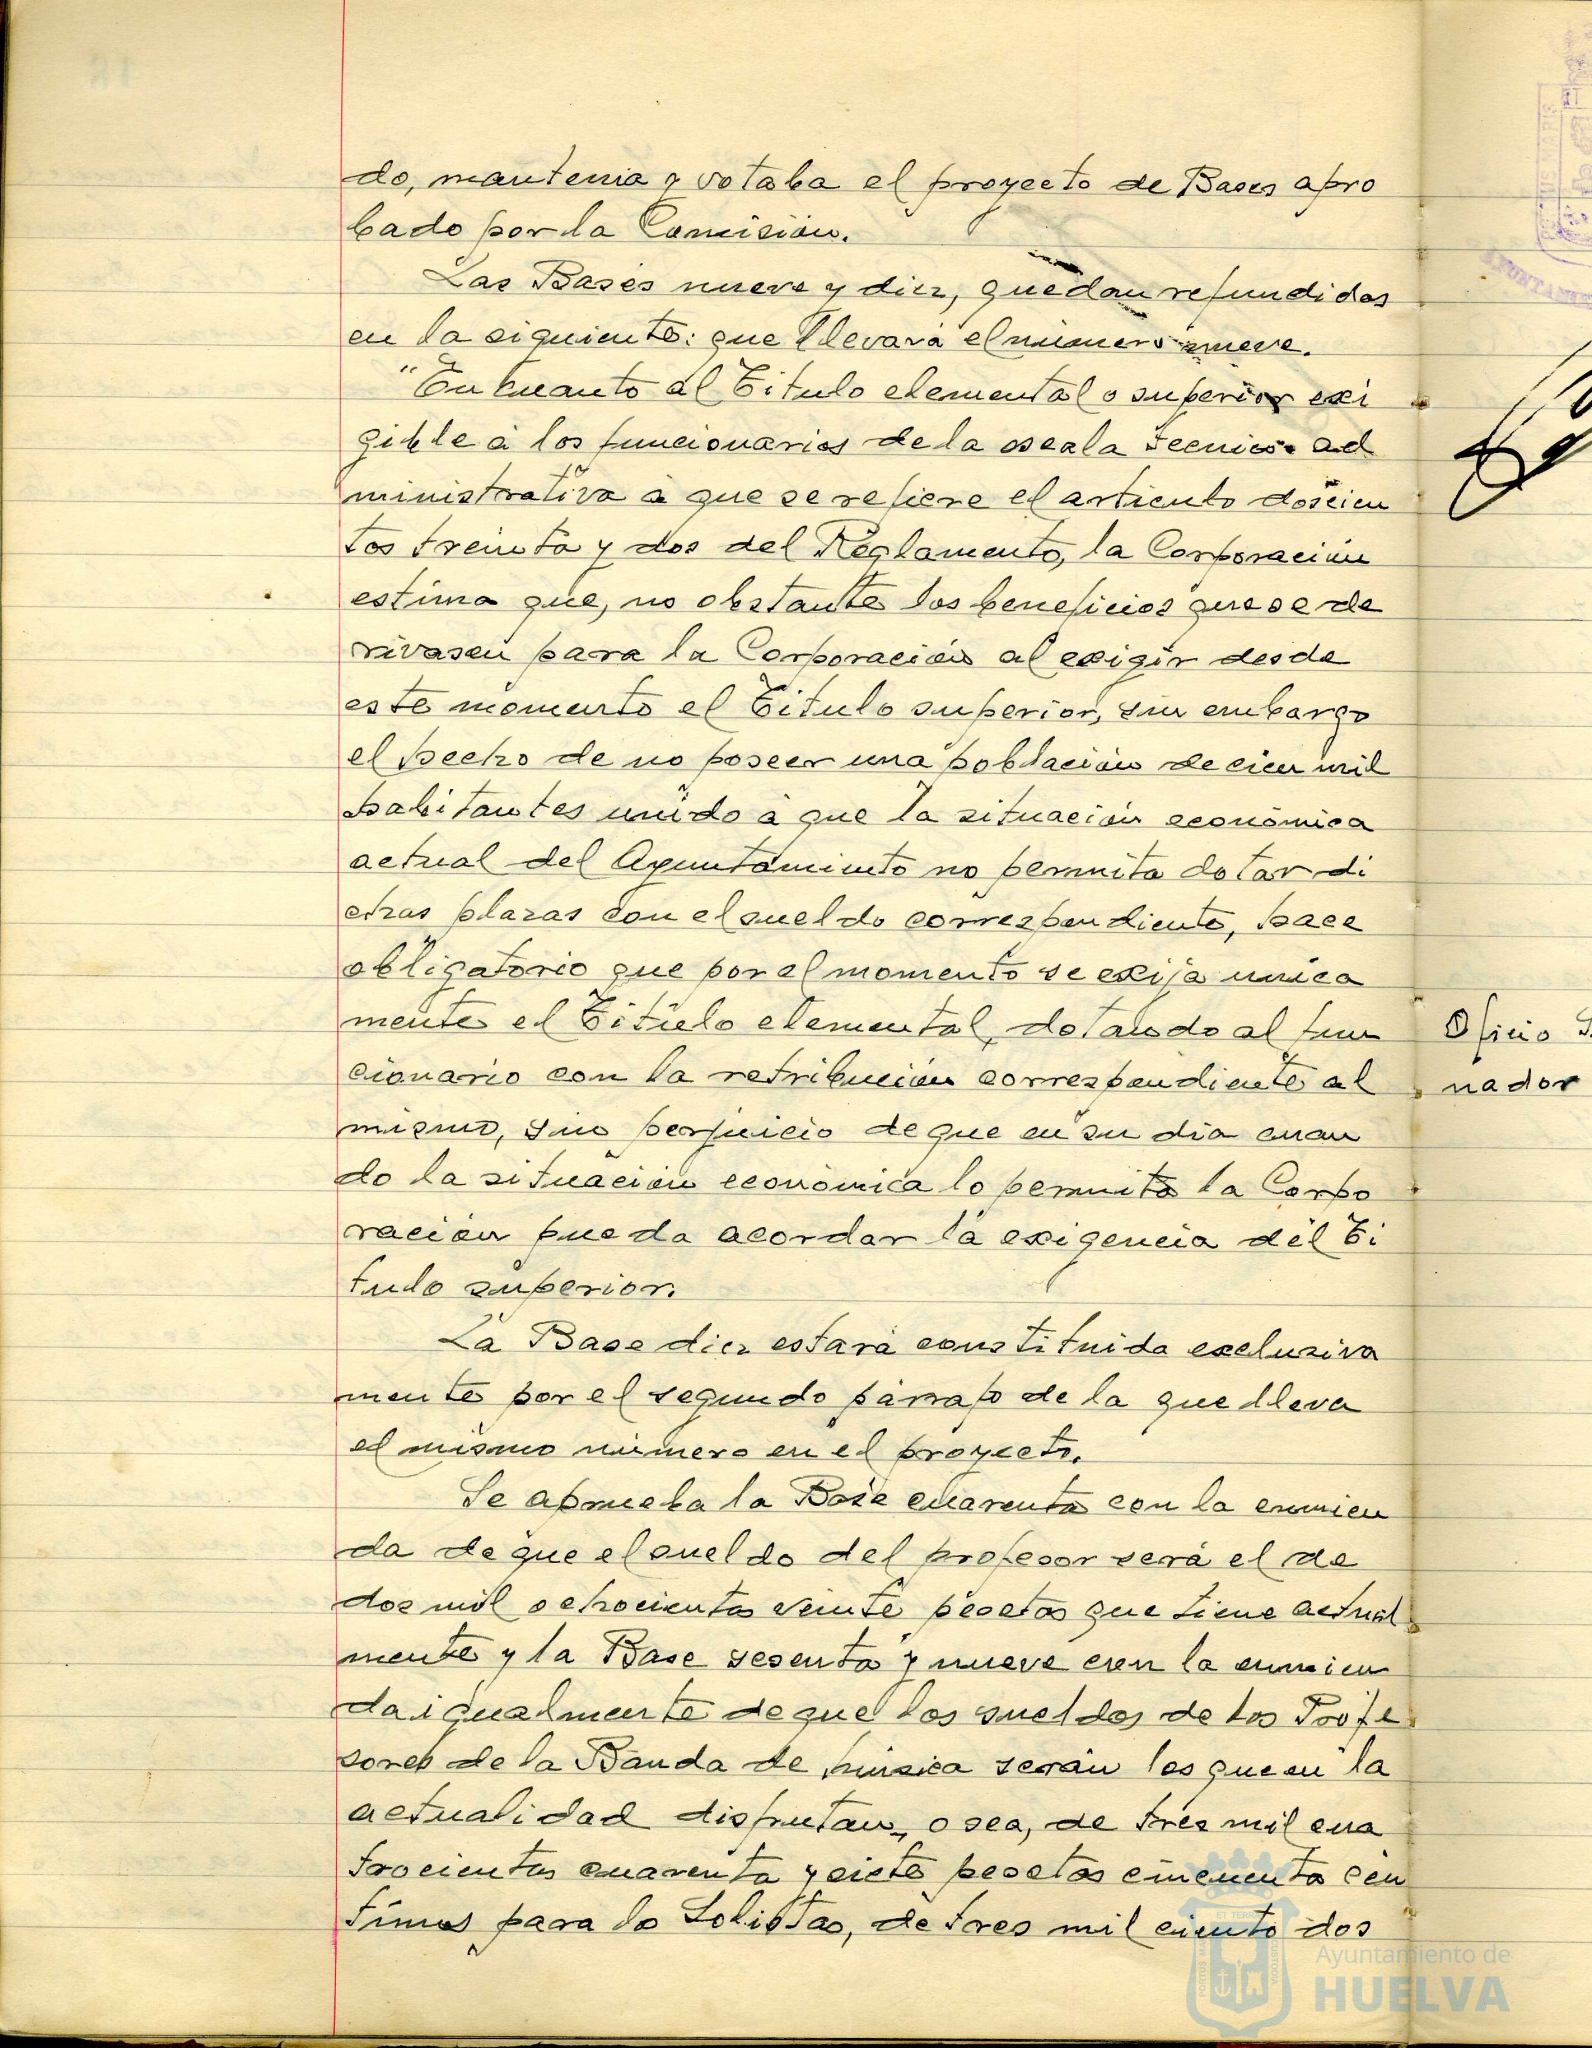 do, mantenia y votaba el proyecto de Bases apro
bado por la Comisión.
Las Bases nueve y diez, quedan refundidas
en la siguiente: que llevará el número nueve.
"En cuanto al Titulo elemental o superior exi
gible á los funcionarios de la escala tecnico ad
ministrativa á que se refiere el articulo doscien
tos treinta y dos del Reglamento, la Corporación
estima que, no obstante los beneficios que se de
rivasen para la Corporación al exigir desde
este momento el Titulo superior, sin embargo
el hecho de no poseer una población de cien mil
habitantes unido á que la situación económica
actual del Ayuntamiento no permita dotar di
chas plazas con el sueldo correspondiente, hace
obligatorio que por el momento se exija unica
mente el Titulo elemental, dotando al fun
cionario con la retribución correspondiente al
mismo, sin perjuicio de que en su dia cuan
do la situación económica lo permita la Corpo
ración pueda acordar la exigencia del Ti
tulo superior.
La Base diez estará constituida exclusiva
mente por el segundo párrafo de la que lleva
el mismo número en el proyecto.
Se aprueba la Base cuarenta con la enmien
da de que el sueldo del profesor será el de
dos mil ochocientas veinte pesetas que tiene actual
mente y la Base sesenta y nueve con la enmien
da igualmente de que los sueldos de los Profe
sores de la Banda de música serán los que en la
actualidad disfrutan, o sea, de tres mil cua
trocientas cuarenta y siete pesetas cincuenta cén
timos para lo Solistas, de tres mil ciento dos
Oficio
nador
Ayuntamiento de
HUELVA